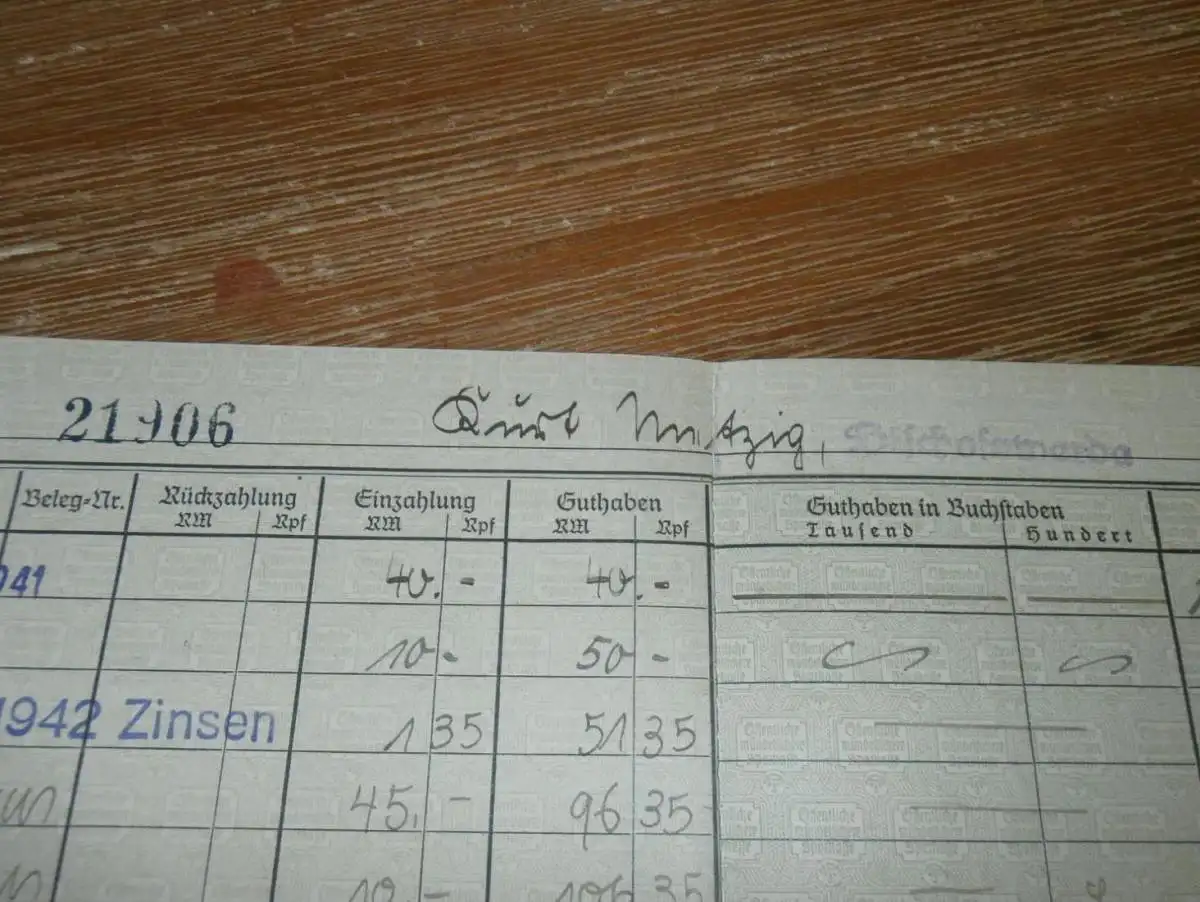 21906 Kurt
Beleg-Nr. Rückzahlung Einzahlung Guthaben Guthaben in Buchstaben
RM Rpf RM Rpf RM Rpf Tausend Hundert
941 40.- 40.-
10 - 50 -
1942 Zinsen 1 35 51 35
45. - 96 35
10 - 106 35